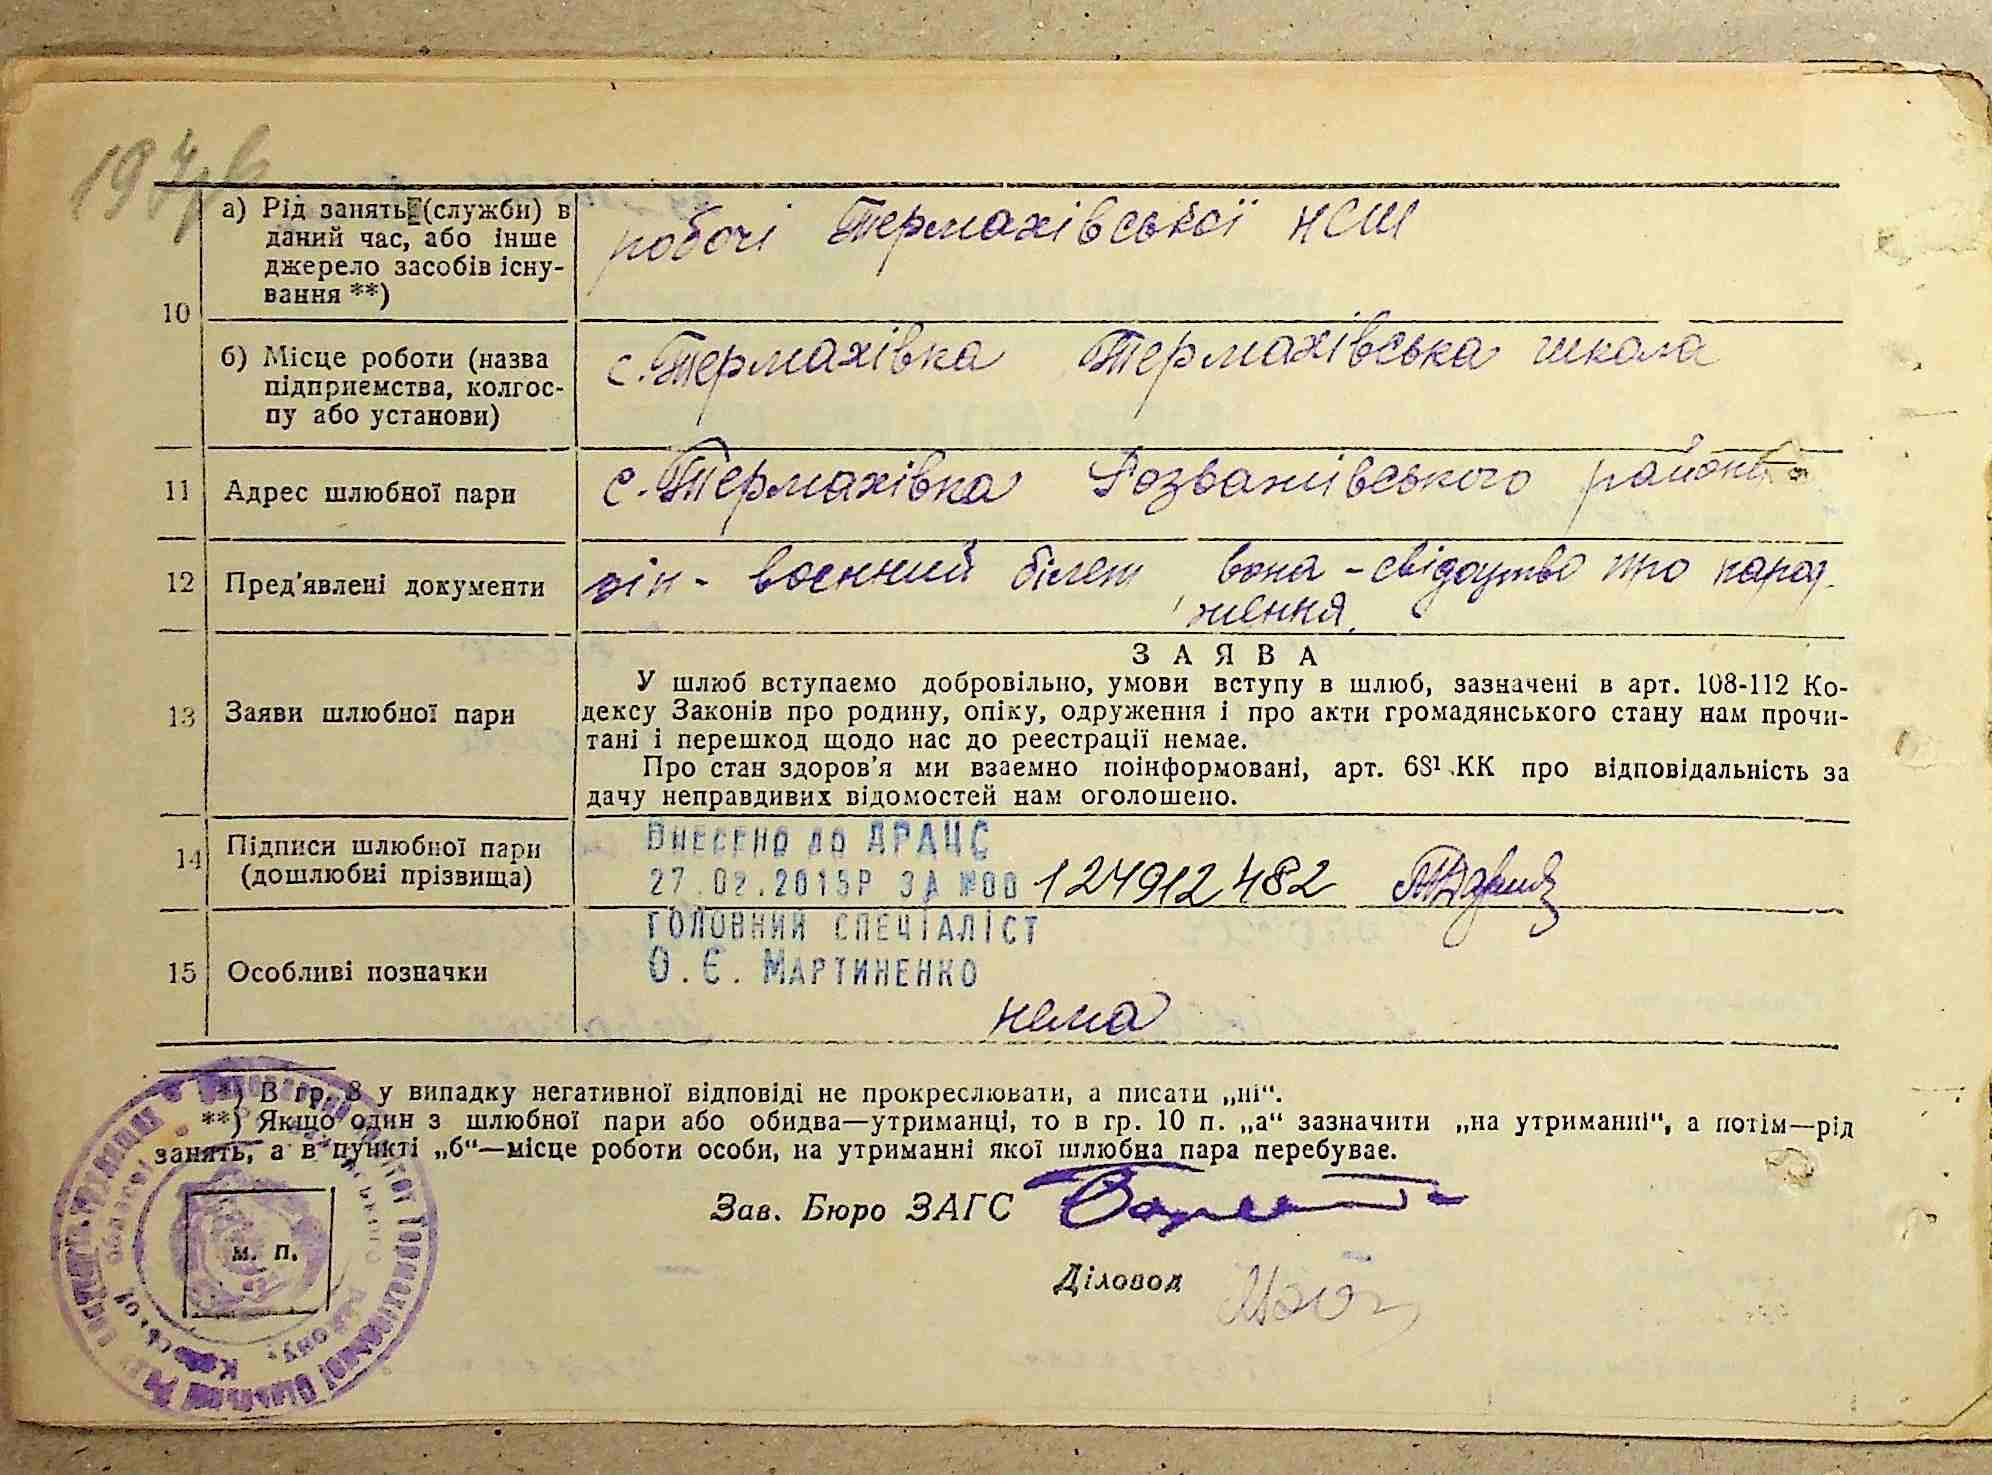 а) Рід занять (служби) в
даний час, або інше
джерело засобів існу-
вання **)
робочі Термахівської НСШ
10
б) Місце роботи (назва
підприємства, колгос-
пу або установи)
с. Термахівка Термахівська школа
11 Адрес шлюбної пари
с. Термахівка Розважівського району
12 Пред'явлені документи
він - воєнний білет, вона - свідоцтво про народ-
ження.
ЗАЯВА
13 Заяви шлюбної пари
У шлюб вступаємо добровільно, умови вступу в шлюб, зазначені в арт. 108-112 Ко-
дексу Законів про родину, опіку, одруження і про акти громадянського стану нам прочи-
тані і перешкод щодо нас до реєстрації немає.
Про стан здоров'я ми взаємно поінформовані, арт. 68¹ КК про відповідальність за
дачу неправдивих відомостей нам оголошено.
14 Підписи шлюбної пари
(дошлюбні прізвища)
Внесено до ДРАЦС
27.02.2015р за №00 124912482
Головний спеціаліст
О.Є. Мартиненко
15 Особливі позначки
нема
*) В гр. 8 у випадку негативної відповіді не прокреслювати, а писати „ні“.
**) Якщо один з шлюбної пари або обидва—утриманці, то в гр. 10 п. „а“ зазначити „на утриманні“, а потім—рід
занять, а в пункті „б“—місце роботи особи, на утриманні якої шлюбна пара перебуває.
Зав. Бюро ЗАГС
м. п.
Діловод